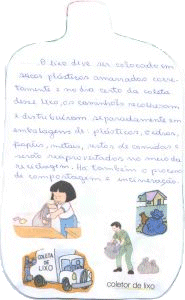 O lixo deve ser colocado em
sacos plásticos amarrados corre-
tamente e no dia certo da coleta
desse lixo, os caminhões recolhessem
e distribuíram separadamente em
embalagens de: plásticos, vidros,
papéis, metais, restos de comidas e
serão reaproveitados no meio da
reciclagem. Há também o processo
de compostagem e incineração.
COLETA
DE
LIXO
coletor de lixo